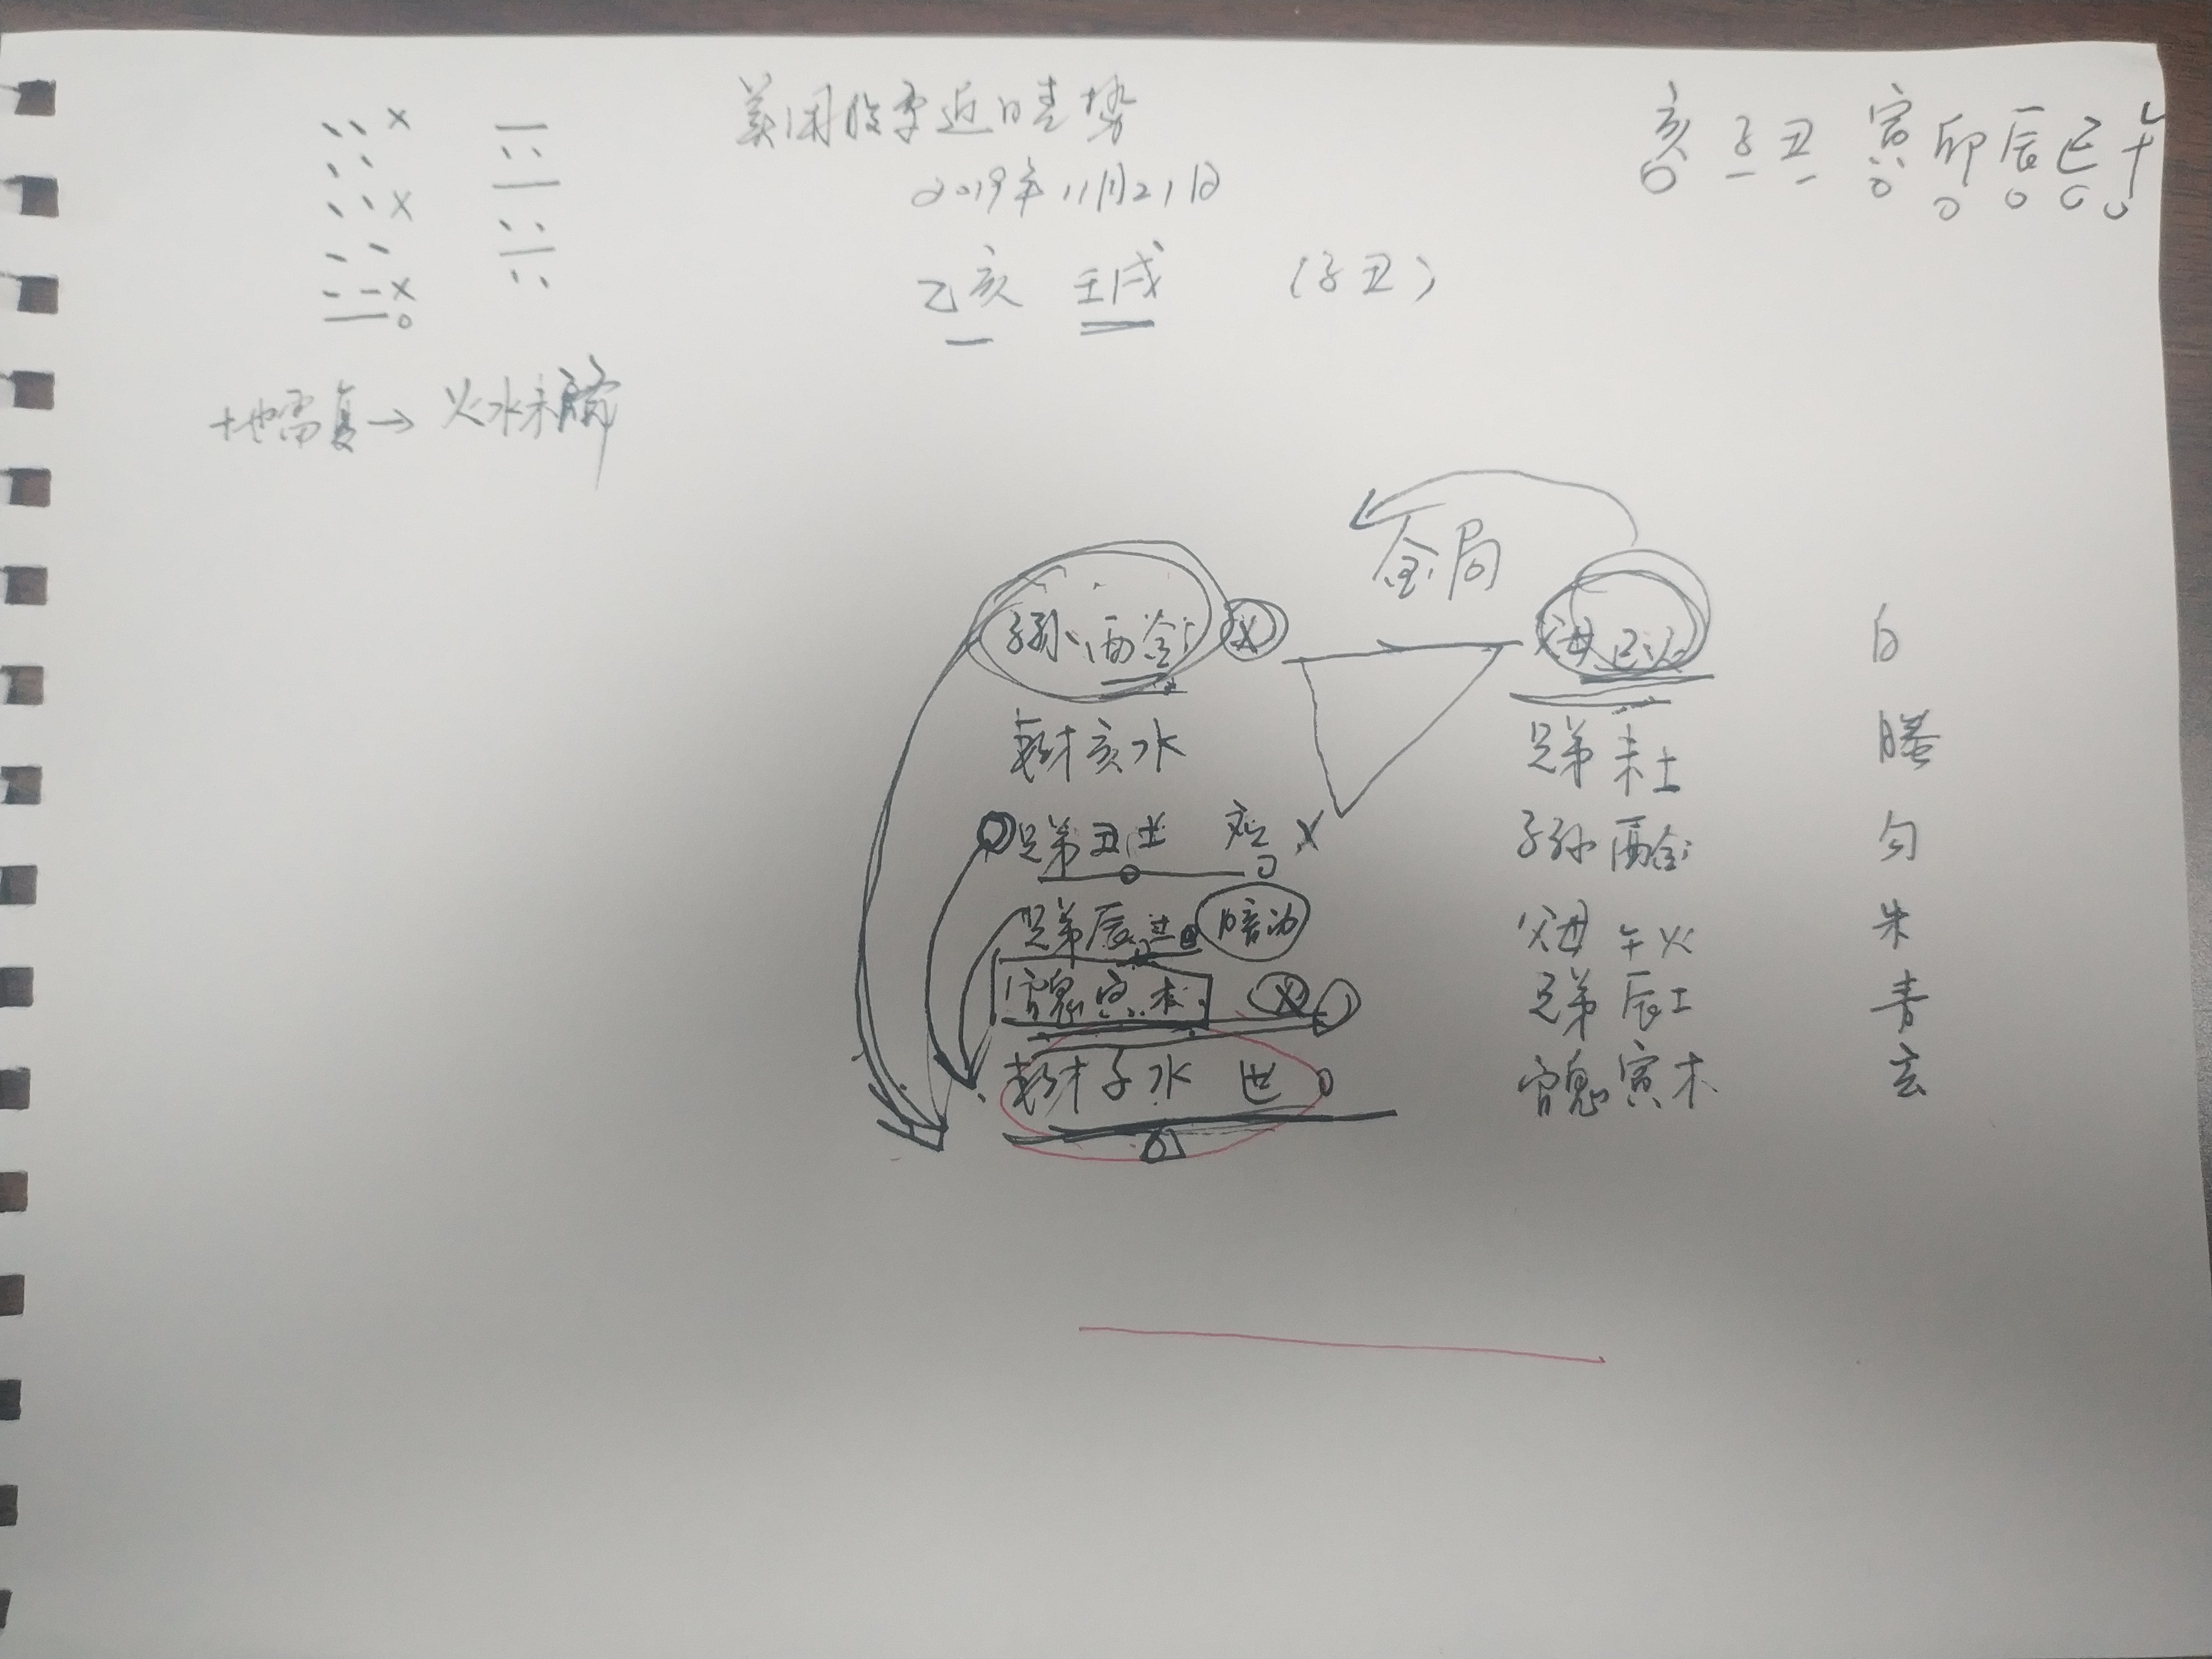 美国股票近日走势
亥 子 丑 寅 卯 辰 巳 午
2019年11月21日
乙亥 壬戌 (子丑)
地雷复→火水未济
金局
子孙酉金 X 父母巳火 白
妻财亥水 兄弟未土 螣
兄弟丑土 应 X 子孙酉金 勾
兄弟辰土 暗动 父母午火 朱
官鬼寅木 X 兄弟辰土 青
妻财子水 世 官鬼寅木 玄